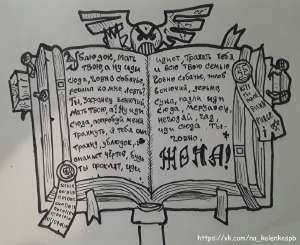 Ублюдок, мать
твою, а ну иди
сюда, говно собачье,
решил ко мне лезть?
Ты, засранец вонючий,
мать твою, а? Ну иди
сюда, попробуй меня
трахнуть, я тебя сам
трахну, ублюдок,
онанист чёртов, будь
ты проклят, иди,
идиот, трахать тебя
и всю твою семью
говно собачье, жлоб
вонючий, дерьмо
сука, падла, иди
сюда, мерзавец,
негодяй, гад,
иди сюда, ты-
говно,
ЖОПА!
https://vk.com/na_kolenkespb